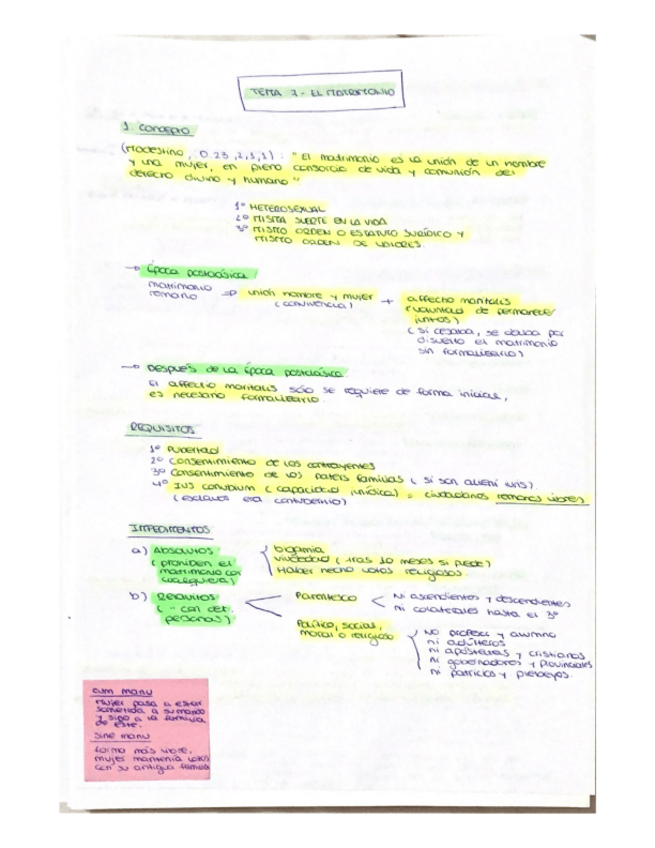 TEMA 7 - EL MATRIMONIO
1. Concepto
(Modestino, D.23,2,1,1) : "El matrimonio es la unión de un hombre
y una mujer, en pleno consorcio de vida y comunión del
derecho divino y humano"
1º HETEROSEXUAL
2º MISMA SUERTE EN LA VIDA
3º MISMO ORDEN O ESTATUTO JURÍDICO Y
MISMO ORDEN DE VALORES.
→ Época postclásica
matrimonio romano ⇒ unión hombre y mujer (convivencia) + affectio maritalis
(voluntad de permanecer
juntos)
(si cesaba, se daba por
disuelto el matrimonio
sin formalizarlo)
→ Después de la Época postclásica
El affectio maritalis sólo se requiere de forma inicial,
es necesario formalizarlo.
REQUISITOS
1º Pubertad
2º Consentimiento de los contrayentes
3º Consentimiento de los pateris familias (si son alieni iuris).
4º Ius conubium (capacidad jurídica) = ciudadanos romanos libres
(esclavos era contubernio)
IMPEDIMENTOS
a) Absolutos
(prohiben el
matrimonio con
cualquiera)
bigamia
viudedad (tras 10 meses si puede)
Haber hecho votos religiosos.
b) Relativos
(" con det.
personas)
Parentesco
Ni ascendientes y descendientes
ni colaterales hasta el 3º
Político, social,
moral o religioso
No profesor y alumno
ni adúlteros
ni apóstatas y cristianos
ni gobernadores y provinciales
ni patricios y plebeyos.
cum manu
Mujer pasa a estar
sometida a su marido
y sigo a la familia
de éste.
sine manu
forma más libre,
mujer mantenía lazos
con su antigua familia